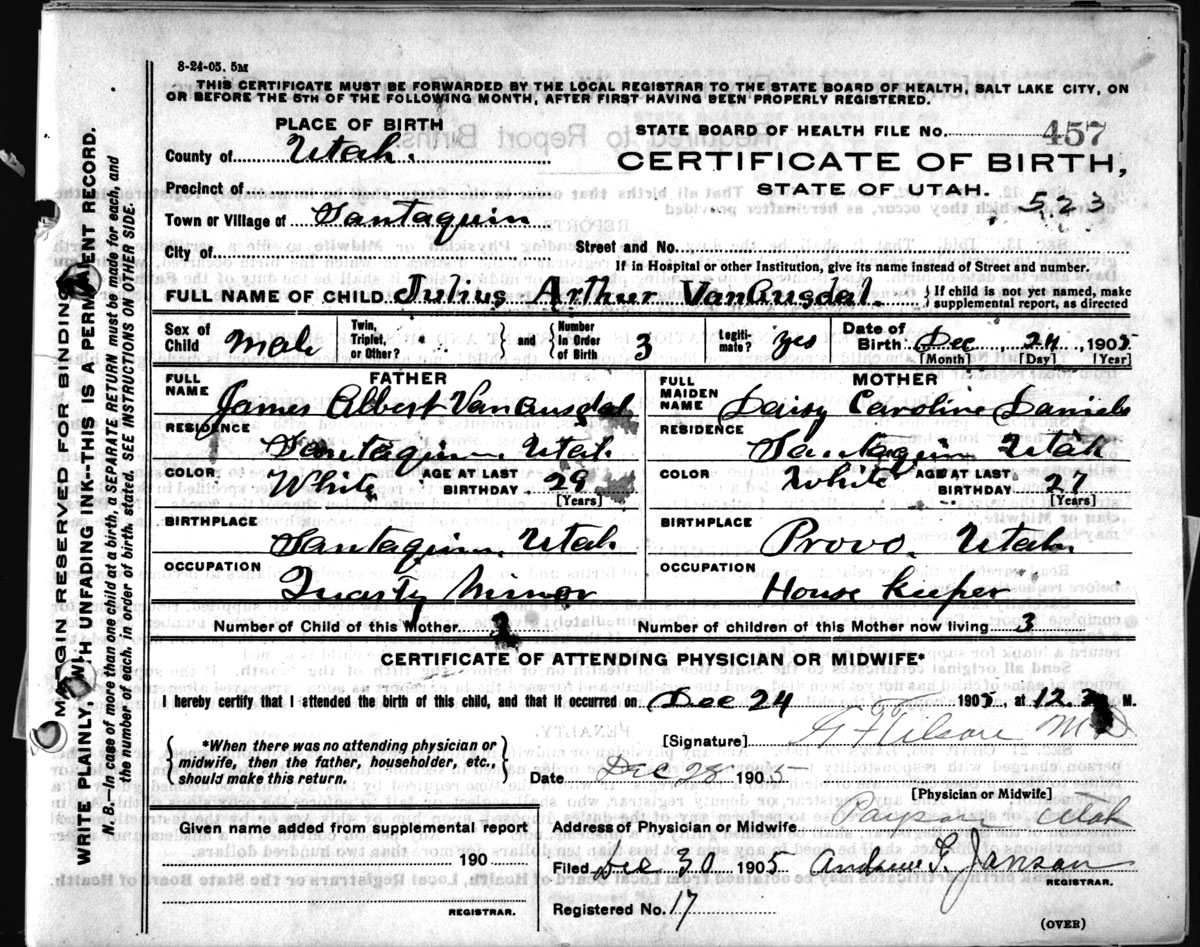 8-24-05. 5M
THIS CERTIFICATE MUST BE FORWARDED BY THE LOCAL REGISTRAR TO THE STATE BOARD OF HEALTH, SALT LAKE CITY, ON
OR BEFORE THE 5TH OF THE FOLLOWING MONTH, AFTER FIRST HAVING BEEN PROPERLY REGISTERED.
PLACE OF BIRTH
STATE BOARD OF HEALTH FILE No. 457
County of Utah.
CERTIFICATE OF BIRTH,
Precinct of
STATE OF UTAH.
523
Town or Village of Santaquin
City of
Street and No.
If in Hospital or other Institution, give its name instead of Street and number.
FULL NAME OF CHILD Julius Arthur VanAusdal. {If child is not yet named, make supplemental report, as directed
Sex of Child Male Twin, Triplet, or Other? } and { Number in Order of Birth 3 Legitimate? yes Date of Birth Dec 24, 1905
[Month] [Day] [Year]
FATHER
MOTHER
FULL NAME James Albert VanAusdal
FULL MAIDEN NAME Daisy Caroline Daniels
RESIDENCE Santaquin, Utah.
RESIDENCE Santaquin Utah
COLOR White AGE AT LAST BIRTHDAY 29 [Years]
COLOR White AGE AT LAST BIRTHDAY 27 [Years]
BIRTHPLACE Santaquin, Utah.
BIRTHPLACE Provo, Utah.
OCCUPATION Quartz Minor
OCCUPATION House Keeper
Number of Child of this Mother
Number of children of this Mother now living 3
CERTIFICATE OF ATTENDING PHYSICIAN OR MIDWIFE*
I hereby certify that I attended the birth of this child, and that it occurred on Dec 24 1905, at 12.2 M.
{*When there was no attending physician or midwife, then the father, householder, etc., should make this return.}
[Signature] M D
Date Dec 28 1905
[Physician or Midwife]
Given name added from supplemental report
190
REGISTRAR.
Address of Physician or Midwife Payson Utah
Filed Dec 30 1905 Andrew
REGISTRAR.
Registered No. 17
(OVER)
MARGIN RESERVED FOR BINDING
WRITE PLAINLY, WITH UNFADING INK--THIS IS A PERMANENT RECORD.
N. B.--In case of more than one child at a birth, a SEPARATE RETURN must be made for each, and
the number of each, in order of birth, stated. SEE INSTRUCTIONS ON OTHER SIDE.